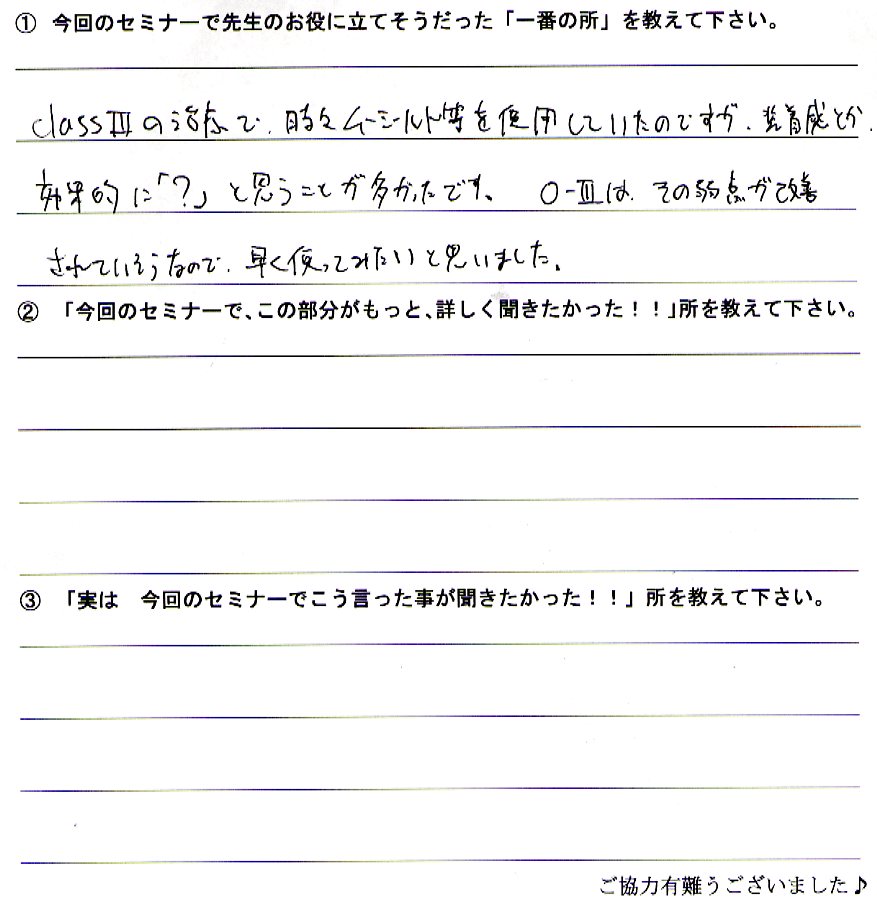 ① 今回のセミナーで先生のお役に立てそうだった「一番の所」を教えて下さい。
class Ⅲの治療で、時々ムーシールド等を使用していたのですが、装着感とか、
効果的に「?」と思うことが多かったです。 O-Ⅲは、その弱点が改善
されていそうなので、早く使ってみたいと思いました。
② 「今回のセミナーで、この部分がもっと、詳しく聞きたかった!!」所を教えて下さい。
③ 「実は 今回のセミナーでこう言った事が聞きたかった!!」所を教えて下さい。
ご協力有難うございました♪